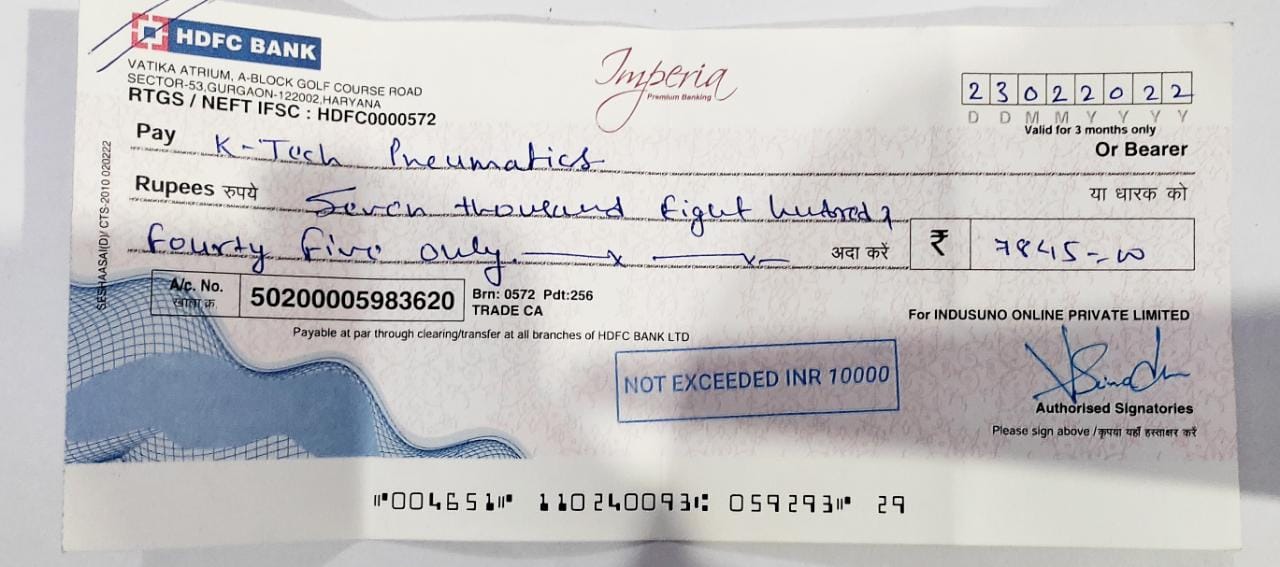 HDFC BANK
VATIKA ATRIUM, A-BLOCK GOLF COURSE ROAD
SECTOR-53,GURGAON-122002,HARYANA
RTGS / NEFT IFSC : HDFC0000572
Imperia
Premium Banking
23022022
D D M M Y Y Y Y
Valid for 3 months only
Pay K-Tech Pneumatics Or Bearer
Rupees रुपये Seven thousand Eight hudred & या धारक को
fourty five only. अदा करें ₹ 7845-00
A/c. No. खाता क्र. 50200005983620 Brn: 0572 Pdt:256
TRADE CA
Payable at par through clearing/transfer at all branches of HDFC BANK LTD
For INDUSUNO ONLINE PRIVATE LIMITED
NOT EXCEEDED INR 10000
Authorised Signatories
Please sign above /कृपया यहाँ हस्ताक्षर करें
SESHAASAI(D)/ CTS-2010 020222
⑈004651⑈ 110240093⑆ 059293⑈ 29